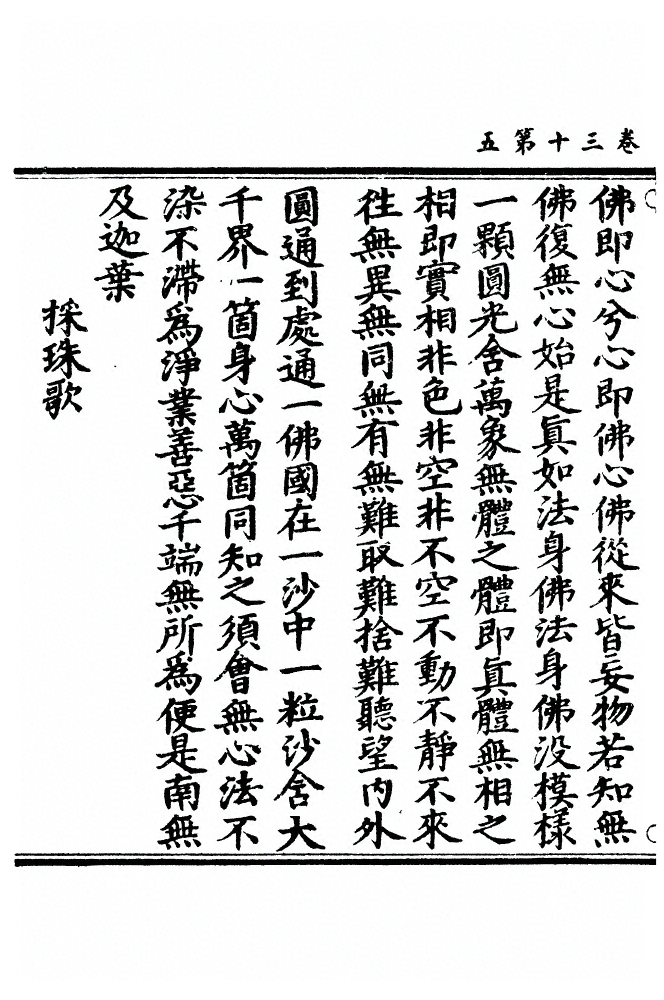 卷三十第五
佛即心兮心即佛心佛從來皆妄物若知無
佛復無心始是真如法身佛法身佛沒模樣
一顆圓光舍萬象無體之體即真體無相之
相即實相非色非空非不空不動不靜不來
徃無異無同無有無難取難捨難聽望內外
圓通到處通一佛國在一沙中一粒沙舍大
千界一箇身心萬箇同知之須會無心法不
染不滯為淨業善惡千端無所為便是南無
及迦葉
採珠歌